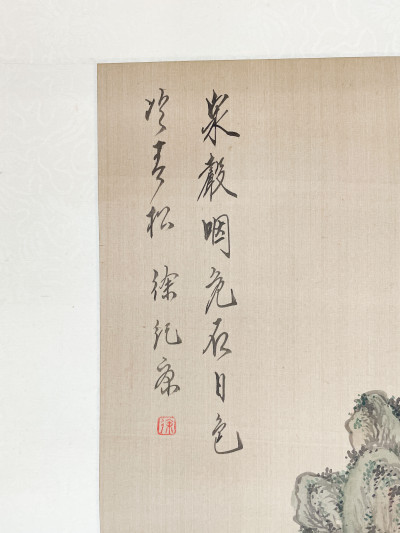 泉聲咽危石日色
冷青松 徐紀康
徐